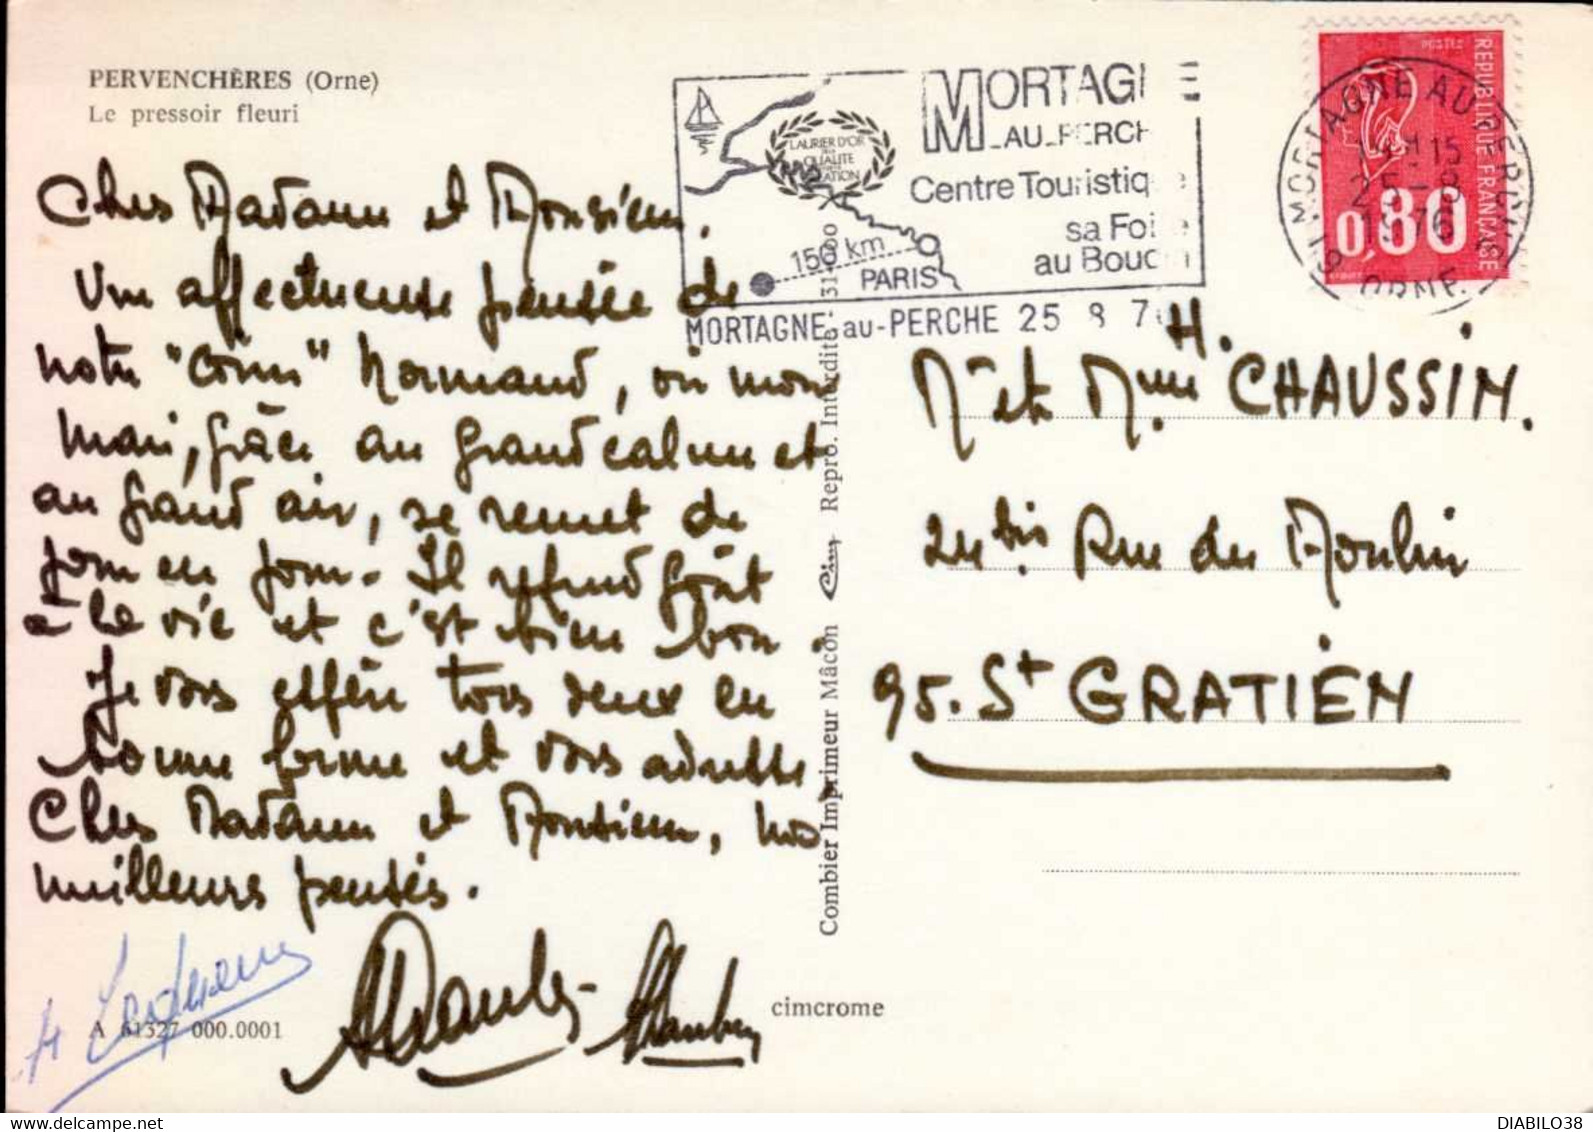 PERVENCHÈRES (Orne)
Le pressoir fleuri
Chers Madame et Monsieur.
Une affectueuse pensée de
notre "coin" Normand, où mon
mari, grâce au grand calme et
au grand air, se remet de
jour en jour. Il reprend goût
à la vie et c'est bien bon.
Je vous espère tous deux en
bonne forme et vous adresse
Chers Madame et Monsieur, nos
meilleures pensées.
A 61327 000.0001
cimcrome
Combier Imprimeur Mâcon Cim Repro. Interdite - 31-000
LAURIER D'OR
QUALITE
150 km
PARIS
MORTAGNE
AU-PERCHE
Centre Touristique
sa Foire
au Boudin
MORTAGNE-au-PERCHE 25 8 76
POSTES
REPUBLIQUE FRANÇAISE
0,80
61 MORTAGNE AU PERCHE
15
25-8
1976
ORNE
Mr et Mme H. CHAUSSIN.
24 bis Rue du Moulin
95. St GRATIEN
DIABILO38